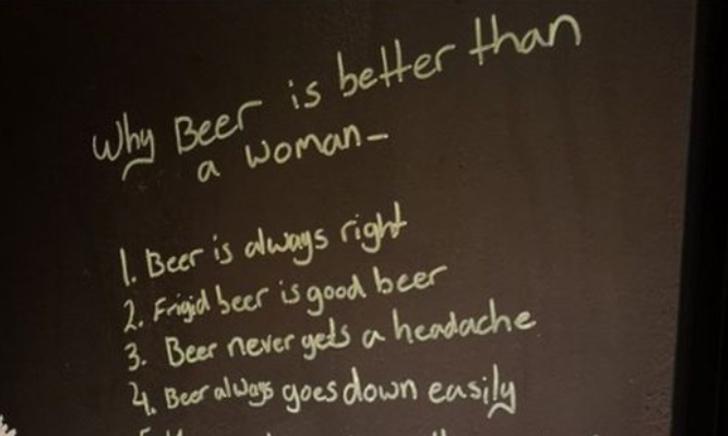 Why Beer is better than
a woman-
1. Beer is always right
2. Frigid beer is good beer
3. Beer never gets a headache
4. Beer always goes down easily